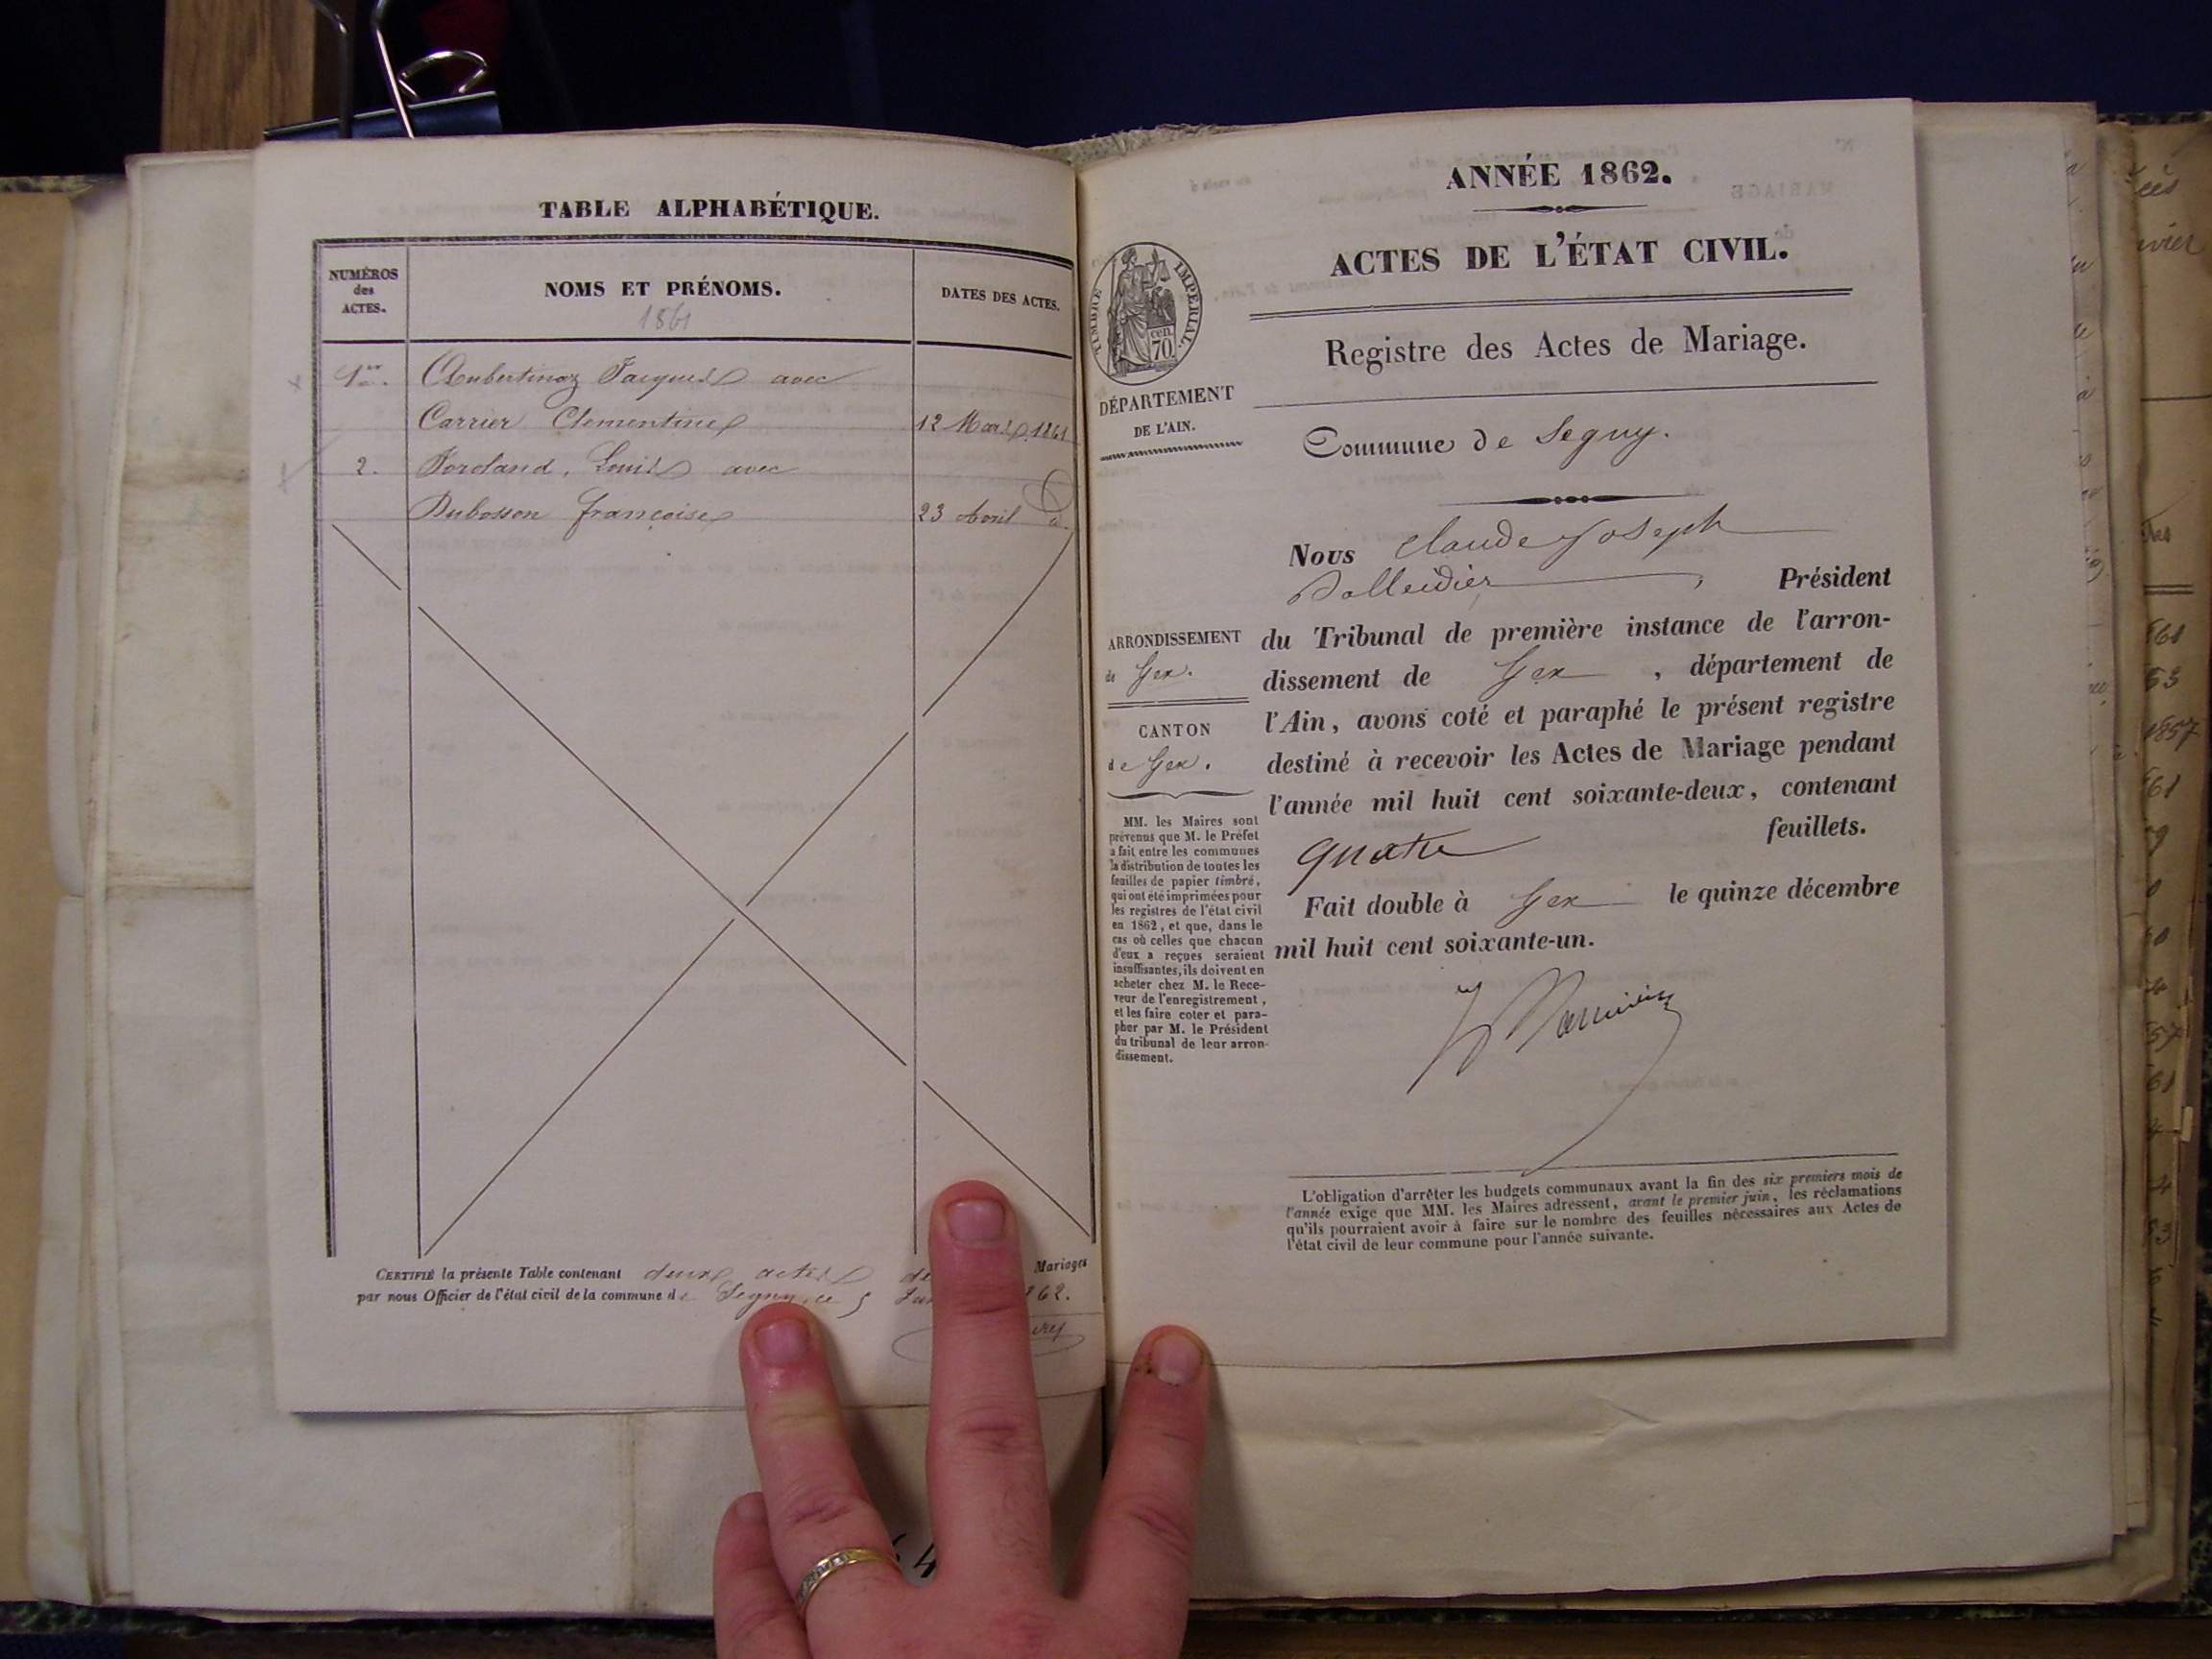 TABLE ALPHABÉTIQUE.
NUMÉROS
des
ACTES.
NOMS ET PRÉNOMS.
1861
DATES DES ACTES.
1er. Aubertinaz Jacques avec
Carrier Clementine 12 Mars 1861
2. Louis avec
Dubosson françoise 23 Avril d.
CERTIFIÉ la présente Table contenant deux actes de Mariages
par nous Officier de l'état civil de la commune de Segny, ce 5 862.
ANNÉE 1862.
ACTES DE L'ÉTAT CIVIL.
TIMBRE IMPERIAL.
cen.
70
Registre des Actes de Mariage.
DÉPARTEMENT
DE L'AIN.
Commune de Segny.
Nous Claude Joseph
, Président
ARRONDISSEMENT
de Gex.
CANTON
de Gex.
du Tribunal de première instance de l'arron-
dissement de Gex , département de
l'Ain, avons coté et paraphé le présent registre
destiné à recevoir les Actes de Mariage pendant
l'année mil huit cent soixante-deux, contenant
quatre feuillets.
Fait double à Gex le quinze décembre
mil huit cent soixante-un.
MM. les Maires sont
prévenus que M. le Préfet
a fait entre les communes
la distribution de toutes les
feuilles de papier timbré,
qui ont été imprimées pour
les registres de l'état civil
en 1862, et que, dans le
cas où celles que chacun
d'eux a reçues seraient
insuffisantes, ils doivent en
acheter chez M. le Rece-
veur de l'enregistrement,
et les faire coter et para-
pher par M. le Président
du tribunal de leur arron-
dissement.
L'obligation d'arrêter les budgets communaux avant la fin des six premiers mois de
l'année exige que MM. les Maires adressent, avant le premier juin, les réclamations
qu'ils pourraient avoir à faire sur le nombre des feuilles nécessaires aux Actes de
l'état civil de leur commune pour l'année suivante.
1857